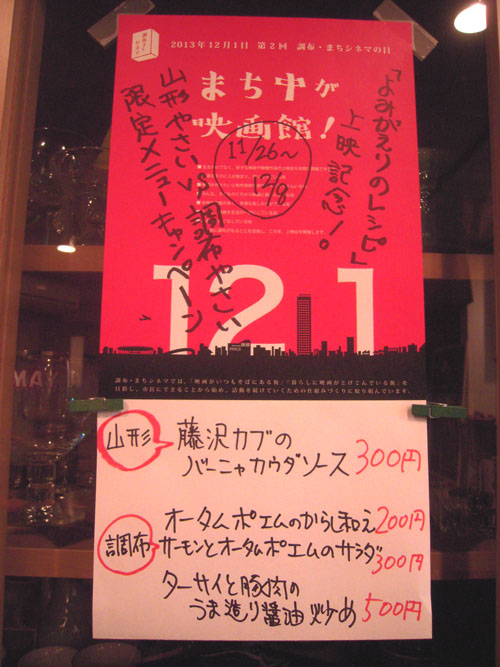 2013年12月1日 第2回 調布・まちシネマの日
まち中が
映画館！
「よみがえりのレシピ」
上映記念！。
11/26〜
12/8
山形やさいVS調布やさい
限定メニューキャンペーン
12 1
調布・まちシネマでは、「映画がいつもそばにある街」「暮らしに映画がとけこんでいる街」を
目指し、市民にできることから始め、活動を続けていくための仕組みづくりに取り組んでいます。
山形
藤沢カブの
バーニャカウダソース 300円
調布
オータムポエムのからし和え 200円
サーモンとオータムポエムのサラダ 300円
ターサイと豚肉の
うま造り醤油炒め 500円